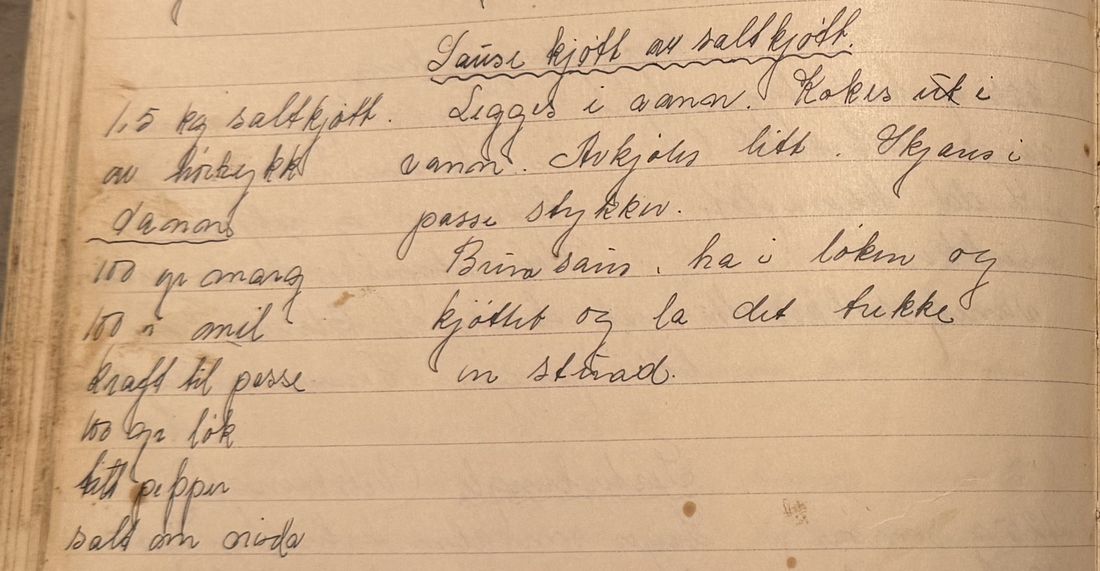 Sause kjøtt av saltkjøtt.
1,5 kg saltkjøtt.
av
vann
100 gr marg
100 " mel
kraft til passe
100 gr løk
litt pepper
salt om nøda
Legges i vann. Kokes ut i
vann. Avkjøles litt. Skjæres i
passe stykker.
Brun saus. ha i løken og
kjøttet og la det trekke
en stund.